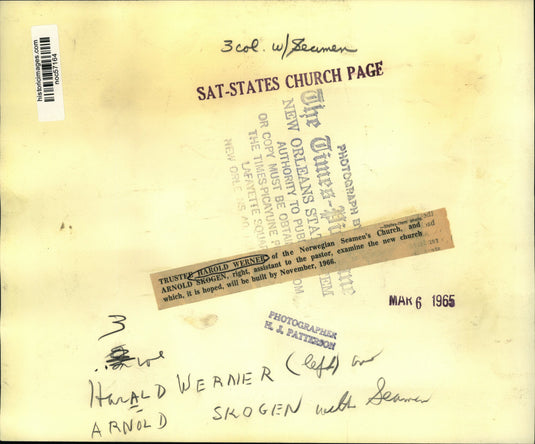 historicimages.com
noc57164
3 col. w/ Seamen
SAT-STATES CHURCH PAGE
PHOTOGRAPH
The Times-
NEW ORLEANS STA
AUTHORITY TO PUB
OR COPY MUST BE OBTA
THE TIMES-PICAYUNE
LAFAYETTE SQUA
NEW ORLE
TRUSTEE HAROLD WERNER of the Norwegian Seamen's Church, and
ARNOLD SKOGEN, right, assistant to the pastor, examine the new church
which, it is hoped, will be built by November, 1966.
MAR 6 1965
PHOTOGRAPHER
H. J. PATTERSON
3
HarALD WERNER (left) and
ARNOLD SKOGEN with Seamen